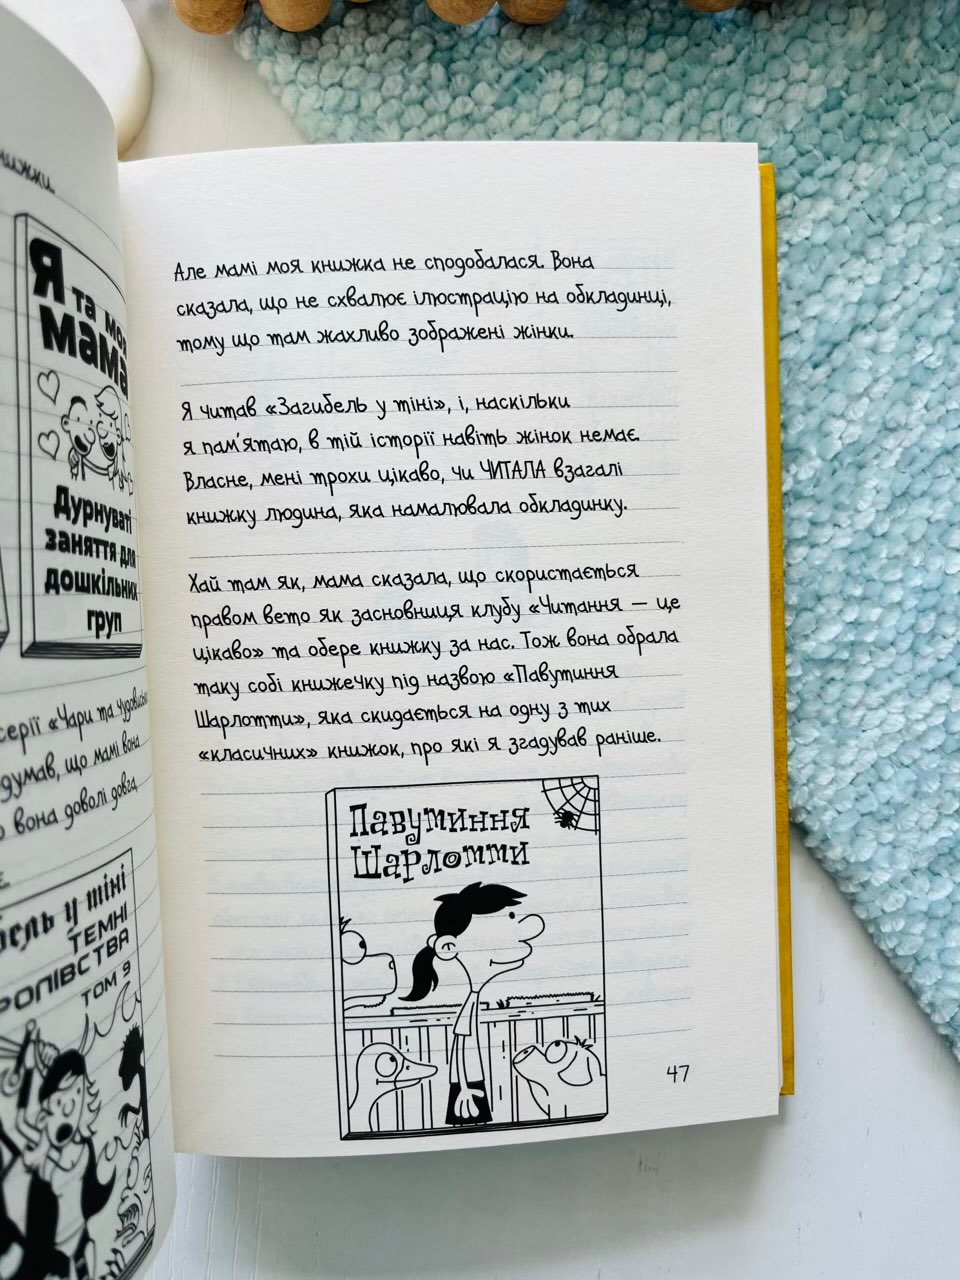 нижки.
Я та моя
мама
Дурнуваті
заняття для
дошкільних
груп
серії «Чари та чудовиська
думав, що мамі вона
вона доволі довга,
у тіні
ТЕМНІ
ТОМ 9
Але мамі моя книжка не сподобалася. Вона
сказала, що не схвалює ілюстрацію на обкладинці,
тому що там жахливо зображені жінки.
Я читав «Загибель у тіні», і, наскільки
я пам'ятаю, в тій історії навіть жінок немає.
Власне, мені трохи цікаво, чи ЧИТАЛА взагалі
книжку людина, яка намалювала обкладинку.
Хай там як, мама сказала, що скористається
правом вето як засновниця клубу «Читання — це
цікаво» та обере книжку за нас. Тож вона обрала
таку собі книжечку під назвою «Павутиння
Шарлотти», яка скидається на одну з тих
«класичних» книжок, про які я згадував раніше.
Павутиння
Шарлотти
47